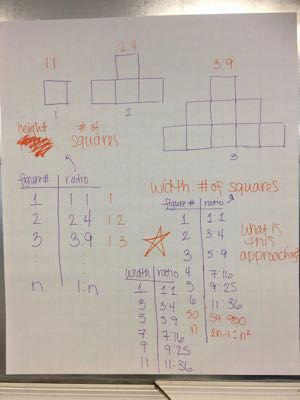 1:1
2:4
3:9
1
2
3
height
# of squares
figure # ratio
1 1:1 1
2 2:4 1:2
3 3:9 1:3
n 1:n
width: # of squares
figure # ratio
1 1:1
2 3:4
3 5:9
4 7:16
5 9:25
6 11:36
30 59:900
n 2n-1:n²
what is this approaching?
width ratio
1 1:1
3 3:4
5 5:9
7 7:16
9 9:25
11 11:36